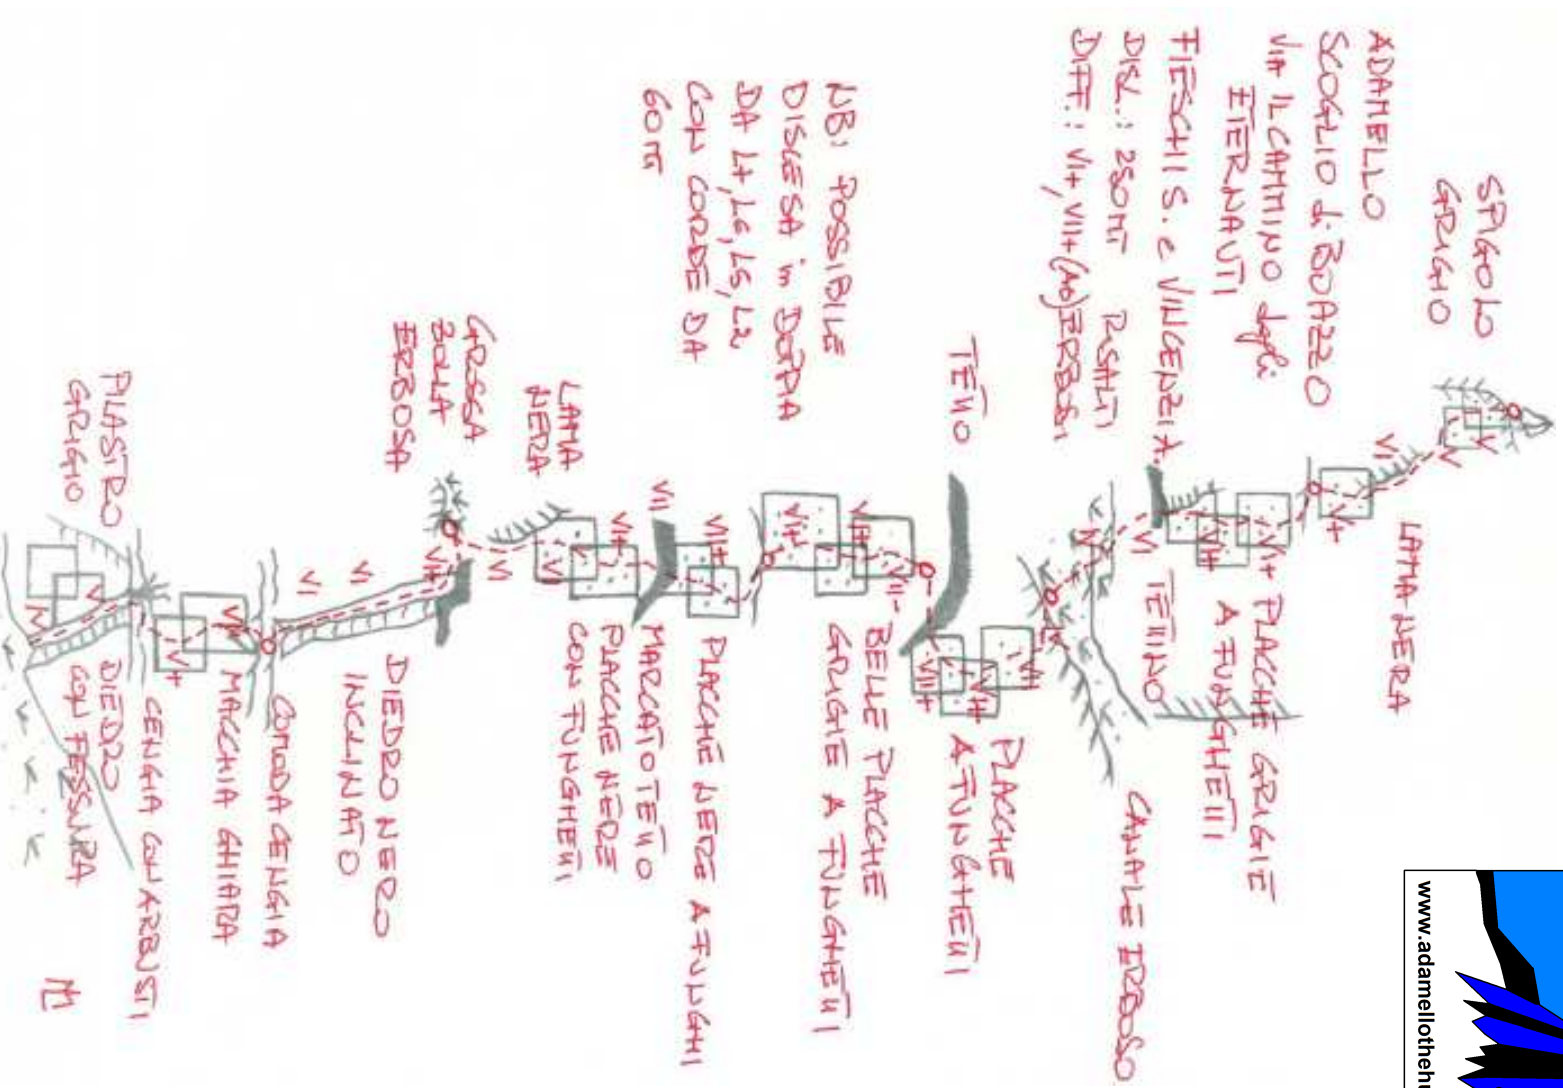 SPIGOLO
GRIGIO
ADAMELLO
SCOGLIO di BOAZZO
VIA IL CAMMINO degli
ETERNAUTI
FIESCHI S. e VINCENZI A.
DISL.: 250MT RISALTI
DIFF.: VI+, VII+(A0) ERBOSI
NB: POSSIBILE
DISCESA in DOPPIA
DA L7, L6, L5, L2
CON CORDE DA
60MT
V
V
VI
LAMA NERA
V+
VI+
PLACCHE GRIGIE
A FUNGHETTI
VI+
VI
TETTINO
IV
CANALE ERBOSO
IV
VII
VI+
VII+
PLACCHE
A FUNGHETTI
TETTO
VII-
VI+
BELLE PLACCHE
GRIGIE A FUNGHETTI
VII+
VII+
PLACCHE NERE A FUNGHI
VII
MARCATO TETTO
VI+
PLACCHE NERE
CON FUNGHETTI
VI
LAMA
NERA
VI
GROSSA
ZOLLA
ERBOSA
VI+
VI
VI
DIEDRO NERO
INCLINATO
COMODA CENGIA
VII
MACCHIA CHIARA
V+
CENGIA CON ARBUSTI
PILASTRO
GRIGIO
V
IV
DIEDRO
CON FESSURA
www.adamellothehu